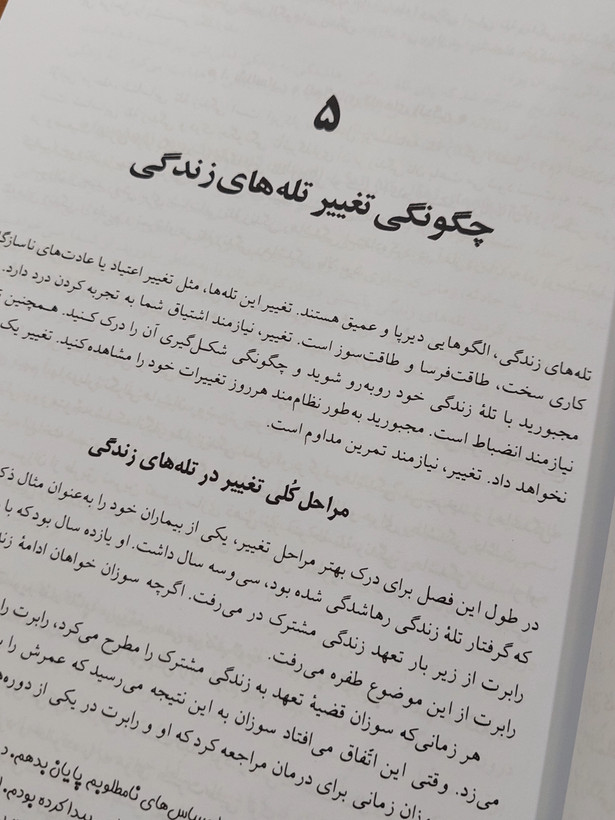 ۵
چگونگی تغییر تله‌های زندگی
تله‌های زندگی، الگوهایی دیرپا و عمیق هستند. تغییر این تله‌ها، مثل تغییر اعتیاد یا عادت‌های
کاری سخت، طاقت‌فرسا و طاقت‌سوز است. تغییر، نیازمند اشتیاق شما به تجربه کردن درد دارد.
مجبورید با تلهٔ زندگی خود روبه‌رو شوید و چگونگی شکل‌گیری آن را درک کنید. همچنین
نیازمند انضباط است. مجبورید به‌طور نظام‌مند هرروز تغییرات خود را مشاهده کنید. تغییر یک
نخواهد داد. تغییر، نیازمند تمرین مداوم است.
مراحل کُلی تغییر در تله‌های زندگی
در طول این فصل برای درک بهتر مراحل تغییر، یکی از بیماران خود را به‌عنوان مثال
که گرفتار تلهٔ زندگی رهاشدگی شده بود، سی‌وسه سال داشت. او یازده سال بود که با
رابرت از زیر بار تعهد زندگی مشترک در می‌رفت. اگرچه سوزان خواهان ادامهٔ
رابرت از این موضوع طفره می‌رفت.
هر زمانی‌که سوزان قضیهٔ تعهد به زندگی مشترک را مطرح می‌کرد، رابرت
می‌زد. وقتی این اتّفاق می‌افتاد سوزان به این نتیجه می‌رسید که عمرش را
زمانی برای درمان مراجعه کرد که او و رابرت در یکی از
های نامطلوبم پایان بدهم.
پیدا کرده بودم.